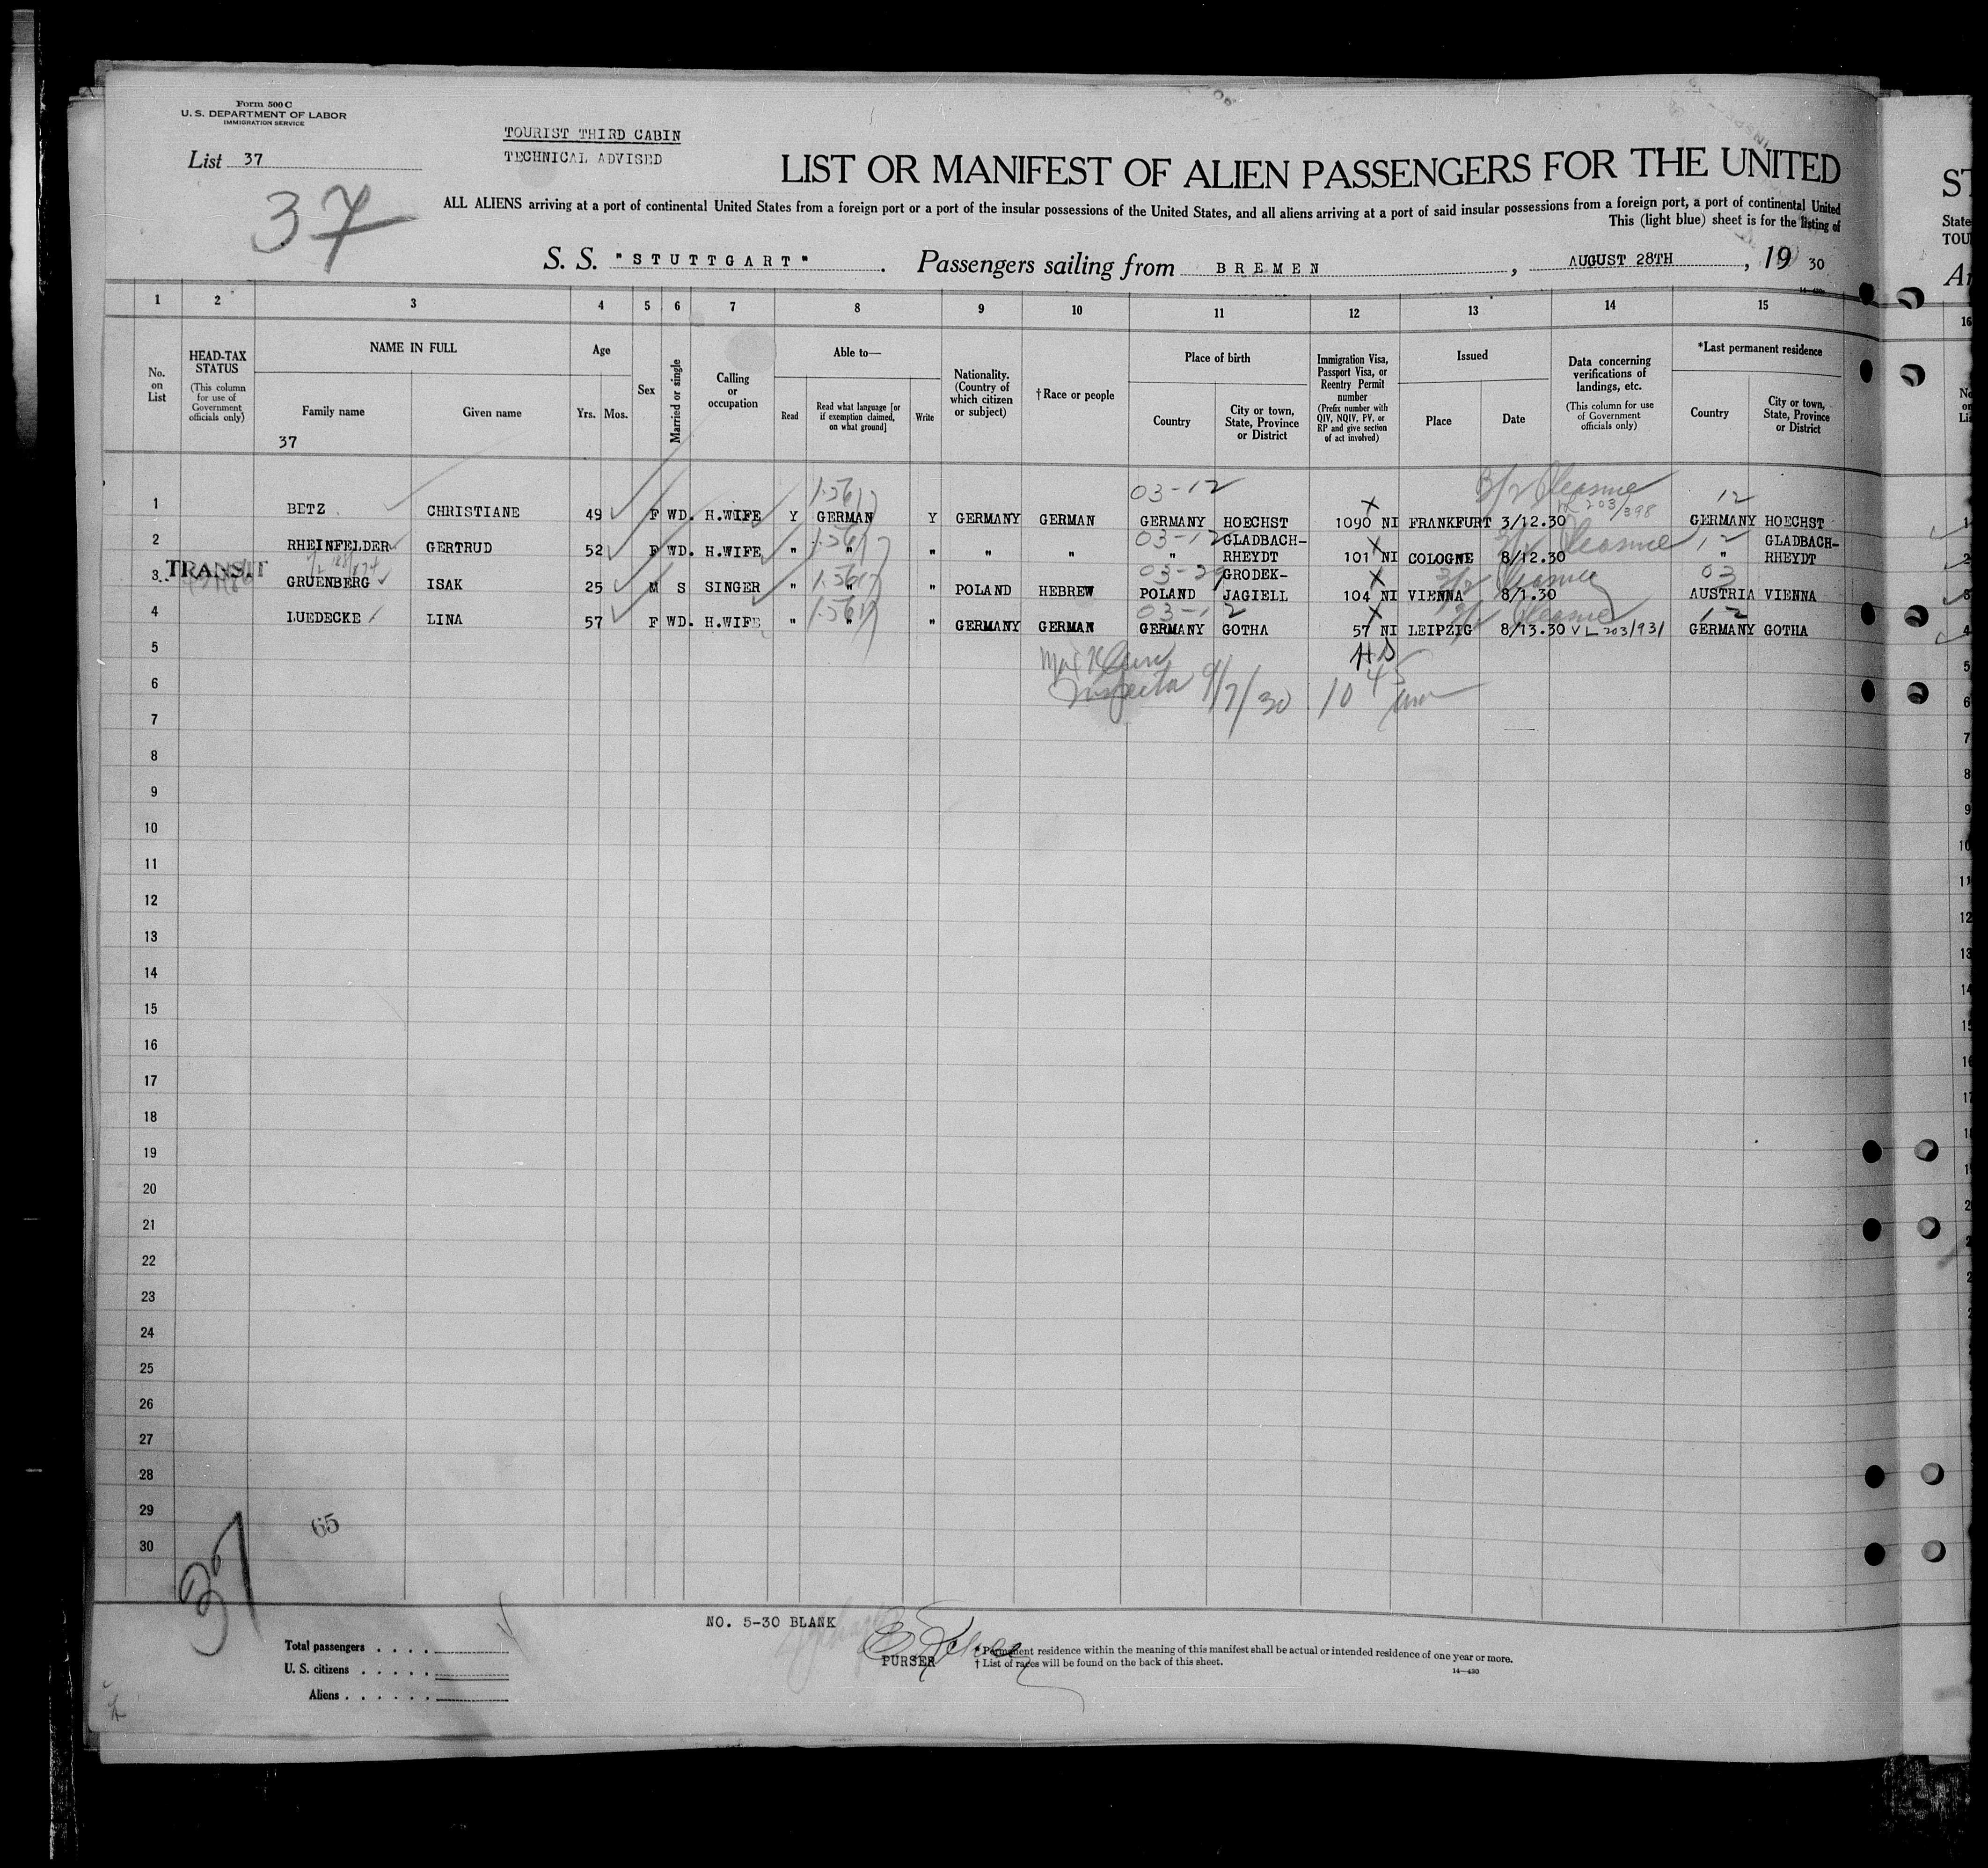 Form 500 C
U. S. DEPARTMENT OF LABOR
IMMIGRATION SERVICE
List 37
37
TOURIST THIRD CABIN
TECHNICAL ADVISED
LIST OR MANIFEST OF ALIEN PASSENGERS FOR THE UNITED
ALL ALIENS arriving at a port of continental United States from a foreign port or a port of the insular possessions of the United States, and all aliens arriving at a port of said insular possessions from a foreign port, a port of continental United
This (light blue) sheet is for the listing of
S. S. "STUTTGART". Passengers sailing from BREMEN, AUGUST 28TH, 19 30
1 2 3 4 5 6 7 8 9 10 11 12 13 14 15
No. on List
HEAD-TAX STATUS
(This column for use of Government officials only)
NAME IN FULL
Family name
Given name
37
Age
Yrs. Mos.
Sex
Married or single
Calling or occupation
Able to—
Read
Read what language [or if exemption claimed, on what ground]
Write
Nationality. (Country of which citizen or subject)
† Race or people
Place of birth
Country
City or town, State, Province or District
Immigration Visa, Passport Visa, or Reentry Permit number
(Prefix number with QIV, NQIV, PV, or RP and give section of act involved)
Issued
Place
Date
Data concerning verifications of landings, etc.
(This column for use of Government officials only)
*Last permanent residence
Country
City or town, State, Province or District
03-12 3/2 Pleasure 12
203/398
1 BETZ CHRISTIANE 49 F WD. H.WIFE Y GERMAN Y GERMANY GERMAN GERMANY HOECHST 1090 NI FRANKFURT 3/12.30 GERMANY HOECHST
03-12 GLADBACH- 3/2 Pleasure 12 GLADBACH-
2 RHEINFELDER GERTRUD 52 F WD. H.WIFE " " " " " " RHEYDT 101 NI COLOGNE 8/12.30 " RHEYDT
TRANSIT
03-29 GRODEK- 3/2 Pleasure 03
3 GRUENBERG ISAK 25 M S SINGER " " " POLAND HEBREW POLAND JAGIELL 104 NI VIENNA 8/1.30 AUSTRIA VIENNA
03-12 3/2 Pleasure 12
4 LUEDECKE LINA 57 F WD. H.WIFE " " " GERMANY GERMAN GERMANY GOTHA 57 NI LEIPZIG 8/13.30 VL 203/931 GERMANY GOTHA
5
Inspector 9/7/30 10 45 am
6
7
8
9
10
11
12
13
14
15
16
17
18
19
20
21
22
23
24
25
26
27
28
29
30
65
37
NO. 5-30 BLANK
PURSER
Total passengers . . . .
U. S. citizens . . . . .
Aliens . . . . . .
* Permanent residence within the meaning of this manifest shall be actual or intended residence of one year or more.
† List of races will be found on the back of this sheet.
14—430
ST
State
TOU
16